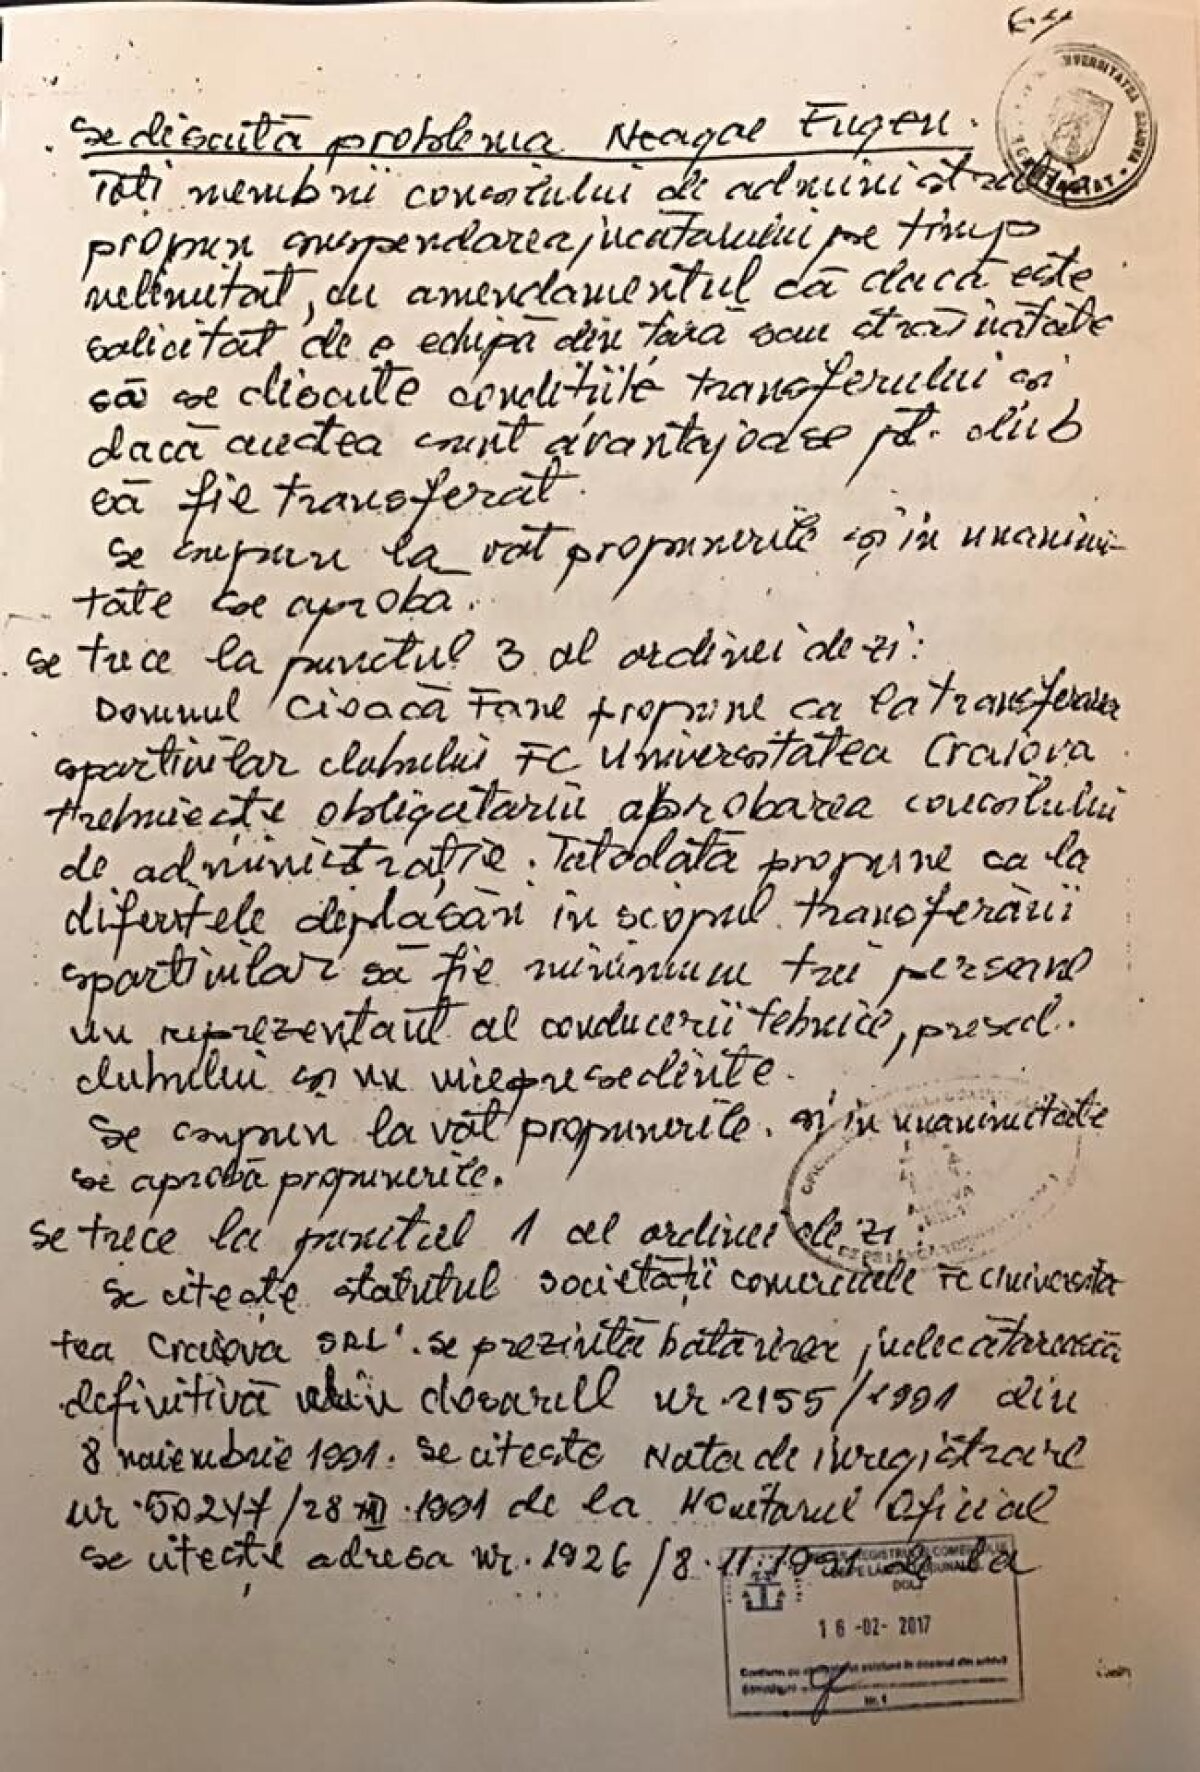 Se discută problema Neagoe Eugen.
Toți membrii consiliului de administrație
propun suspendarea jucătorului pe timp
nelimitat, cu amendamentul că dacă este
solicitat de o echipă din țară sau străinătate
să se discute condițiile transferului și
dacă acestea sunt avantajoase pt. club
să fie transferat.
Se supun la vot propunerile și în unanimi-
tate se aproba.
Se trece la punctul 3 al ordinei de zi:
Domnul Cioacă Fane propune ca la transferarea
sportivilor clubului FC Universitatea Craiova
trebuiește obligatoriu aprobarea consiliului
de administrație. Totodată propune ca la
diferitele deplasări în scopul transferării
sportivilor să fie minimum trei persoane
un reprezentant al conducerii tehnice, presed.
clubului și un vicepreședinte.
Se supun la vot propunerile. și în unanimitate
se aprobă propunerile.
Se trece la punctul 1 al ordinei de zi:
Se citește statutul societății comerciale FC Universita-
tea Craiova SRL. Se prezintă hotărîrea judecătorească
definitivă din dosarul nr. 2155/1991 din
8 noiembrie 1991. Se citeste Nota de înregistrare
nr. 50247/28 XII. 1991 de la Monitorul Oficial
Se citește adresa nr. 1926/8.11.1991 de la
UNIVERSITATEA CRAIOVA
REGISTRUL COMERȚULUI
DE PE LÂNGĂ TRIBUNALUL
DOLJ
16 -02- 2017
nr. 1